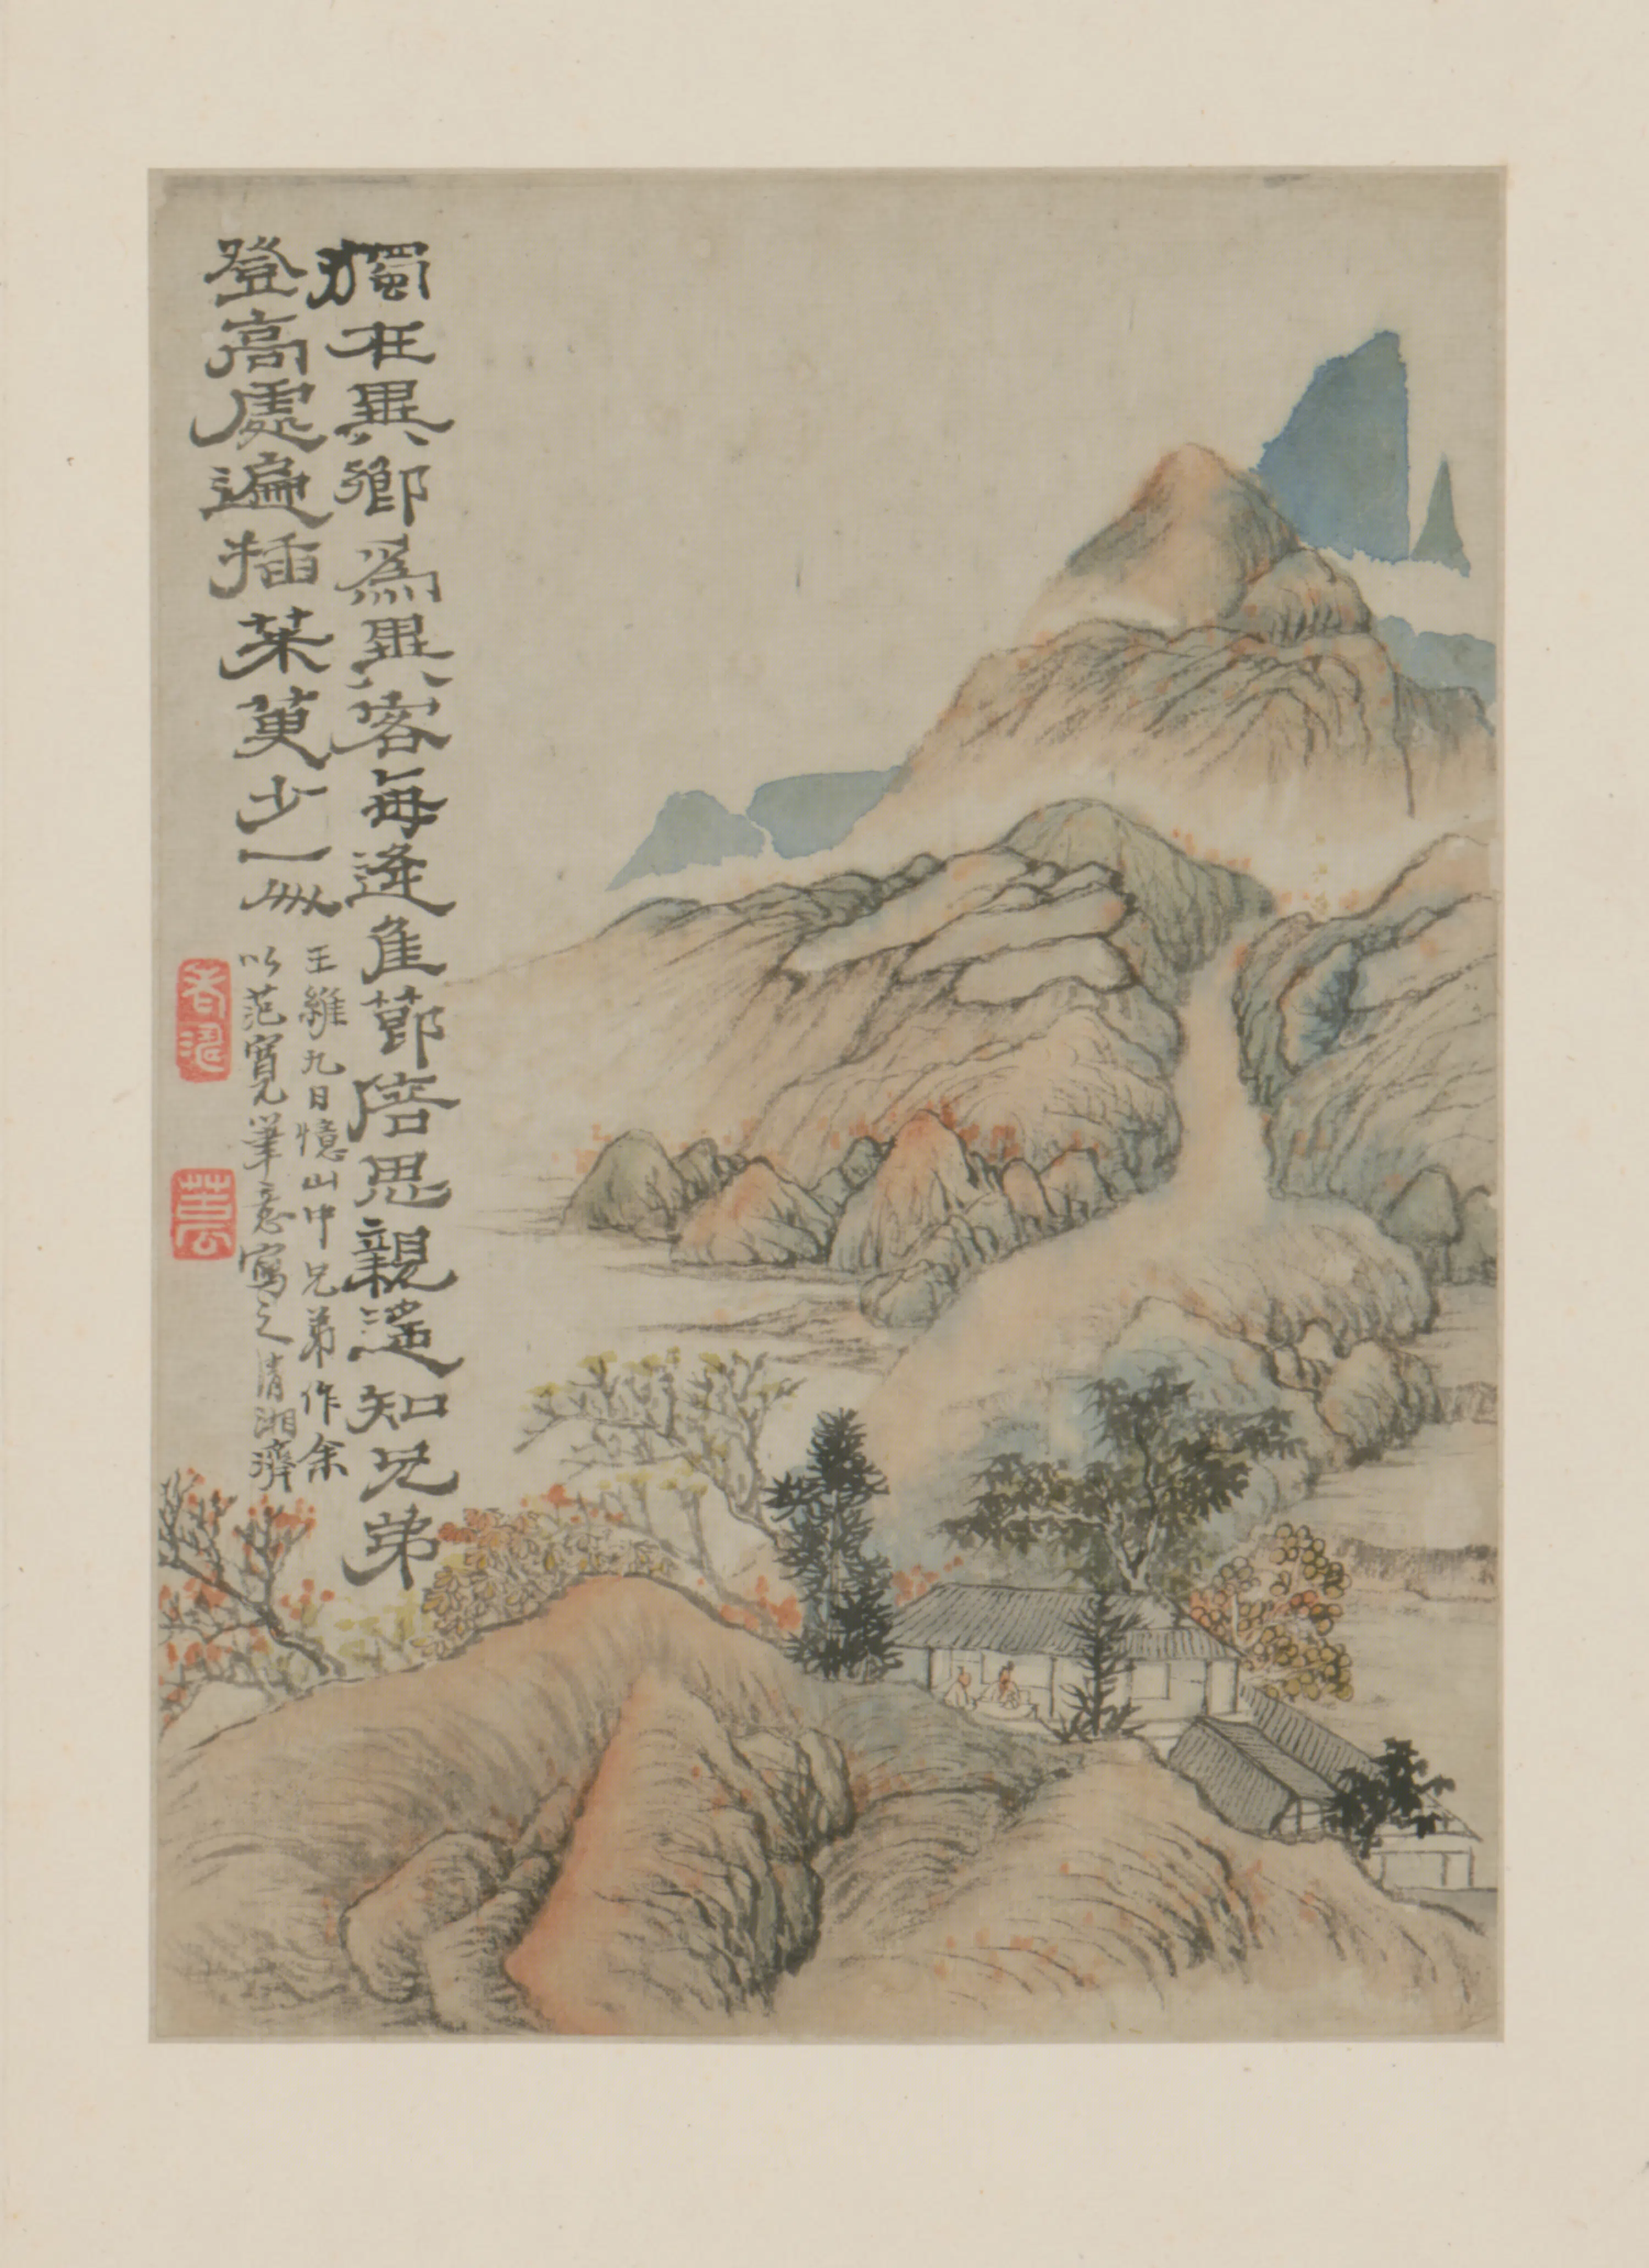 獨在異鄉為異客每逢佳節倍思親遙知兄弟
登高處遍插茱萸少一人
王維九日憶山中兄弟作余
以范寬筆意寫之清湘濟
老濤
苦瓜